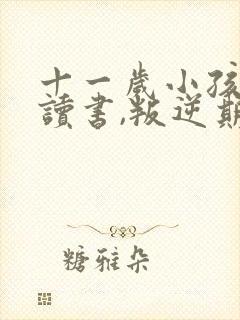 十一歲小孩
讀書,叛逆期
糖雅朵